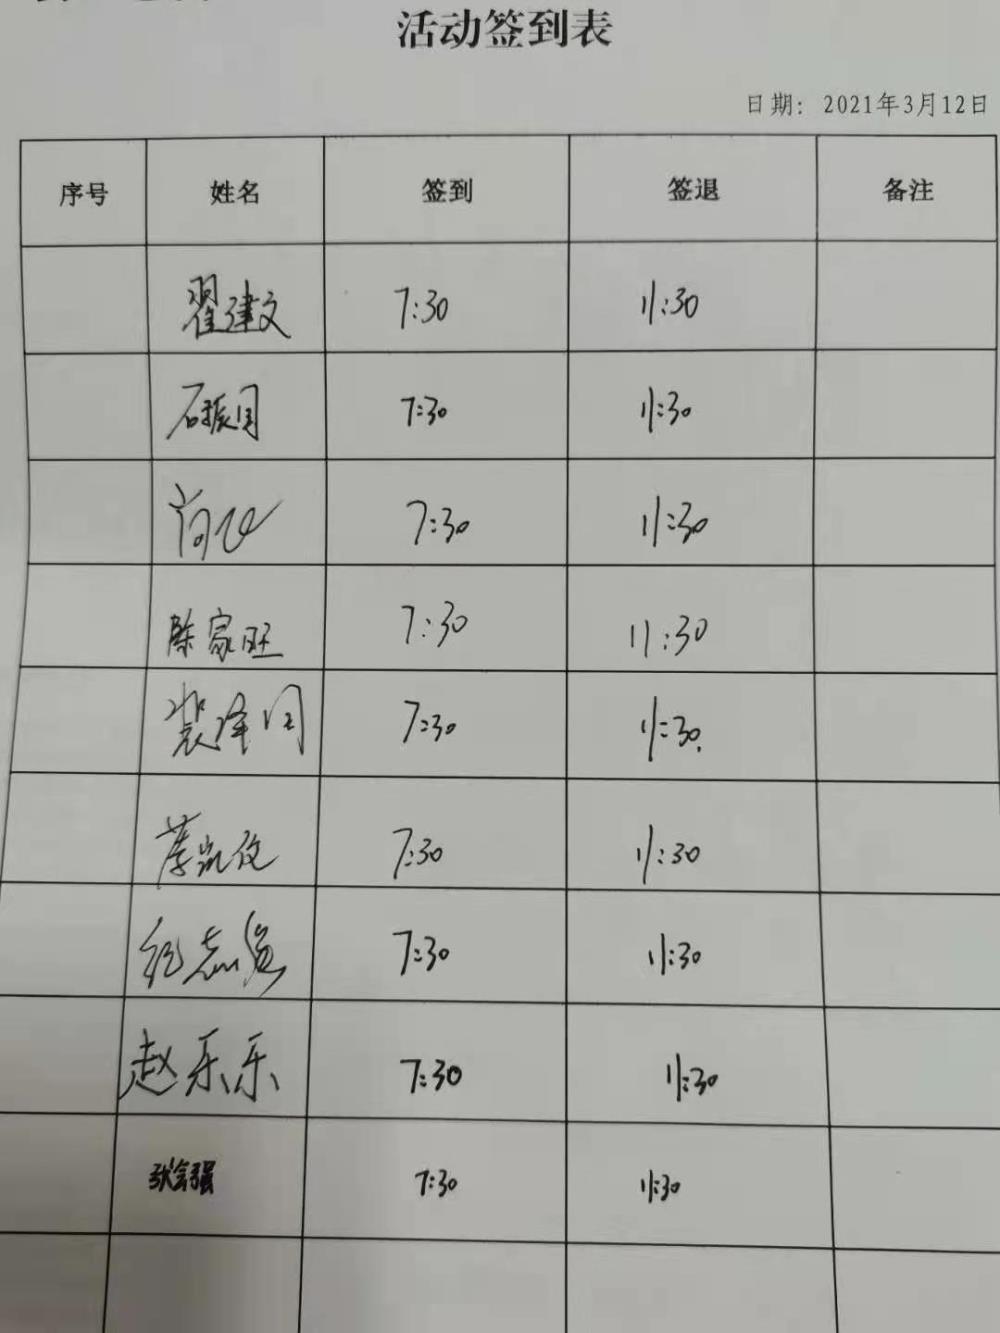 活动签到表
日期：2021年3月12日
序号 姓名 签到 签退 备注
翟建文 7:30 11:30
石振国 7:30 11:30
7:30 11:30
陈家旺 7:30 11:30
裴泽同 7:30 11:30
7:30 11:30
纪志 7:30 11:30
赵乐乐 7:30 11:30
张会强 7:30 11:30